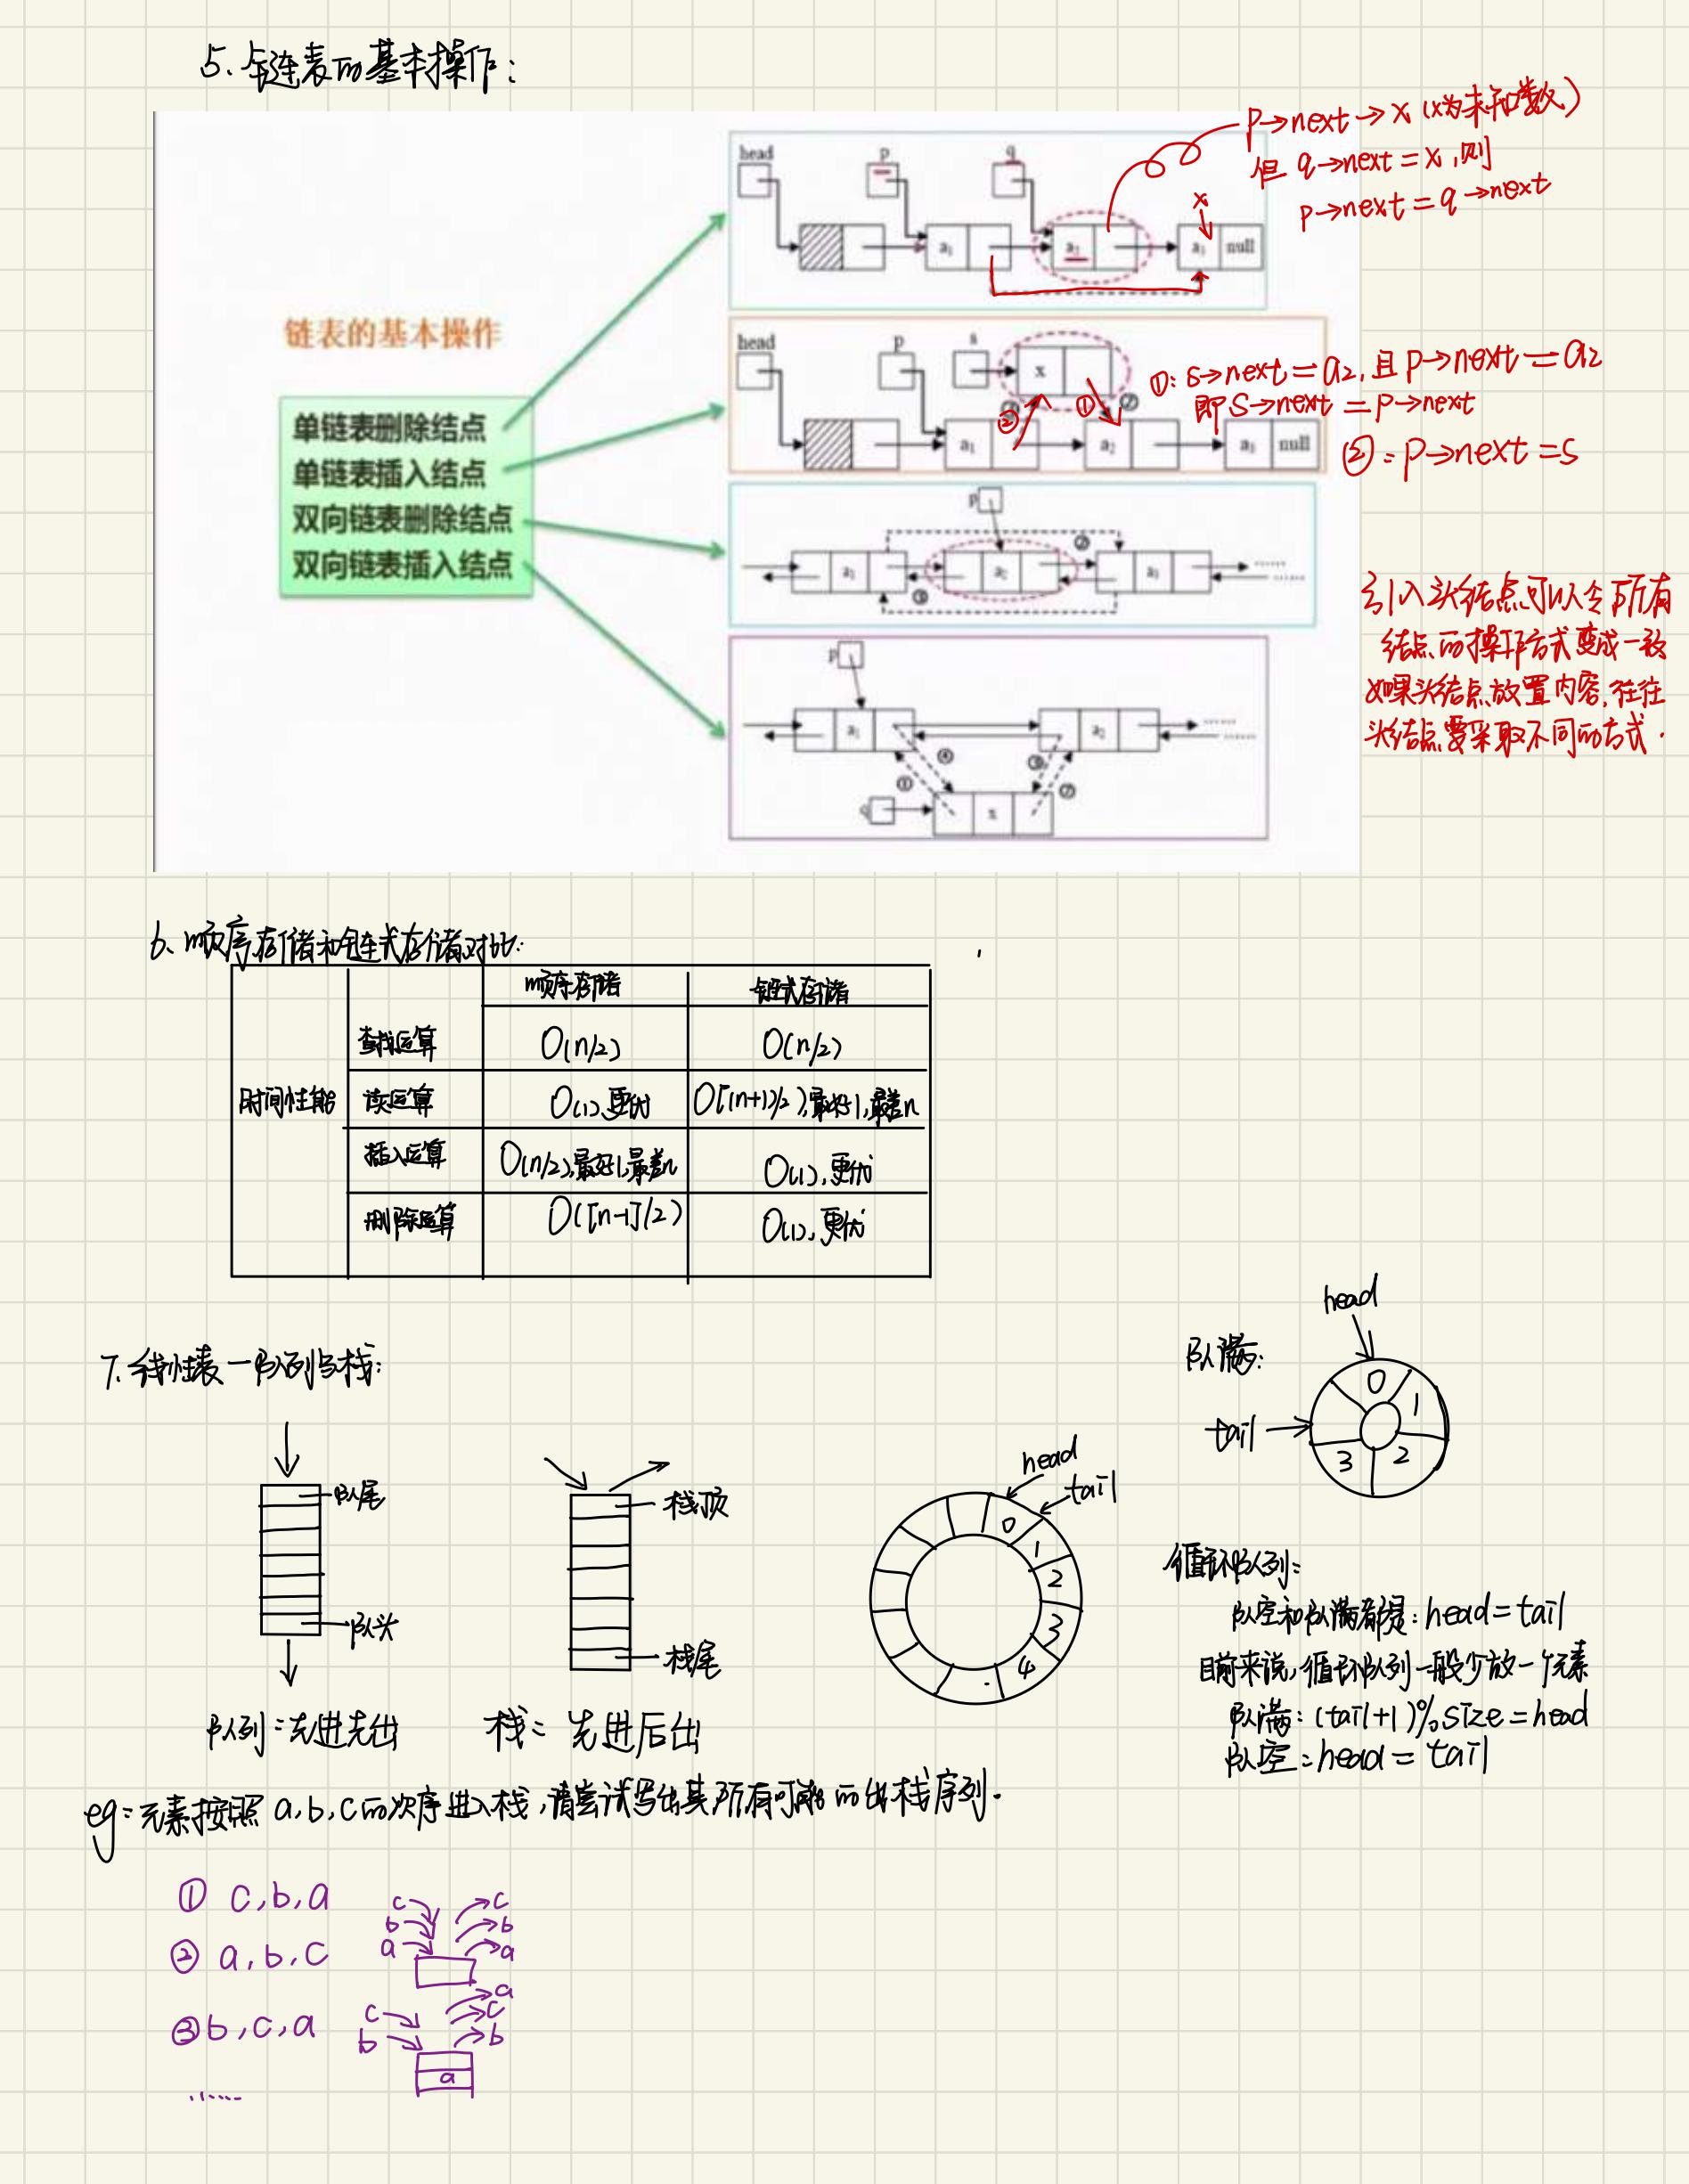 5. 链表的基本操作:
链表的基本操作
单链表删除结点
单链表插入结点
双向链表删除结点
双向链表插入结点
head p q
a₁ a₂ a₃ null
x
p→next→x (x为未知数)
但 q→next=x,则
p→next=q→next
head p s
x
① ②
a₁ a₂ a₃ null
①: s→next=a₂,且p→next=a₂
即s→next=p→next
②: p→next=s
p
②
a₁ a₂ a₃ ......
......
③
引入头结点可以令所有
结点的操作方式变成一致
如果头结点放置内容,往往
头结点要采取不同的方式.
p
a₁ a₂ ......
......
④ ③
① ②
q x
6、顺序存储和链式存储对比:
顺序存储 链式存储
查找运算 O(n/2) O(n/2)
时间性能 读运算 O(1),更优 O[(n+1)/2),最好1,最差n
插入运算 O(n/2),最好1,最差n O(1),更优
删除运算 O([n-1]/2) O(1),更优
7. 线性表—队列与栈:
队尾
队头
队列:先进先出
栈顶
栈尾
栈:先进后出
head
tail
0
1
2
3
4
队满:
head
tail
0
1
2
3
循环队列:
队空和队满都是:head=tail
目前来说,循环队列一般少放一个元素
队满:(tail+1)%size=head
队空:head=tail
eg:元素按照 a,b,c的次序进入栈,请尝试写出其所有可能的出栈序列.
① c,b,a
c c
b b
a a
② a,b,c
③ b,c,a
a
c c
b b
a
......